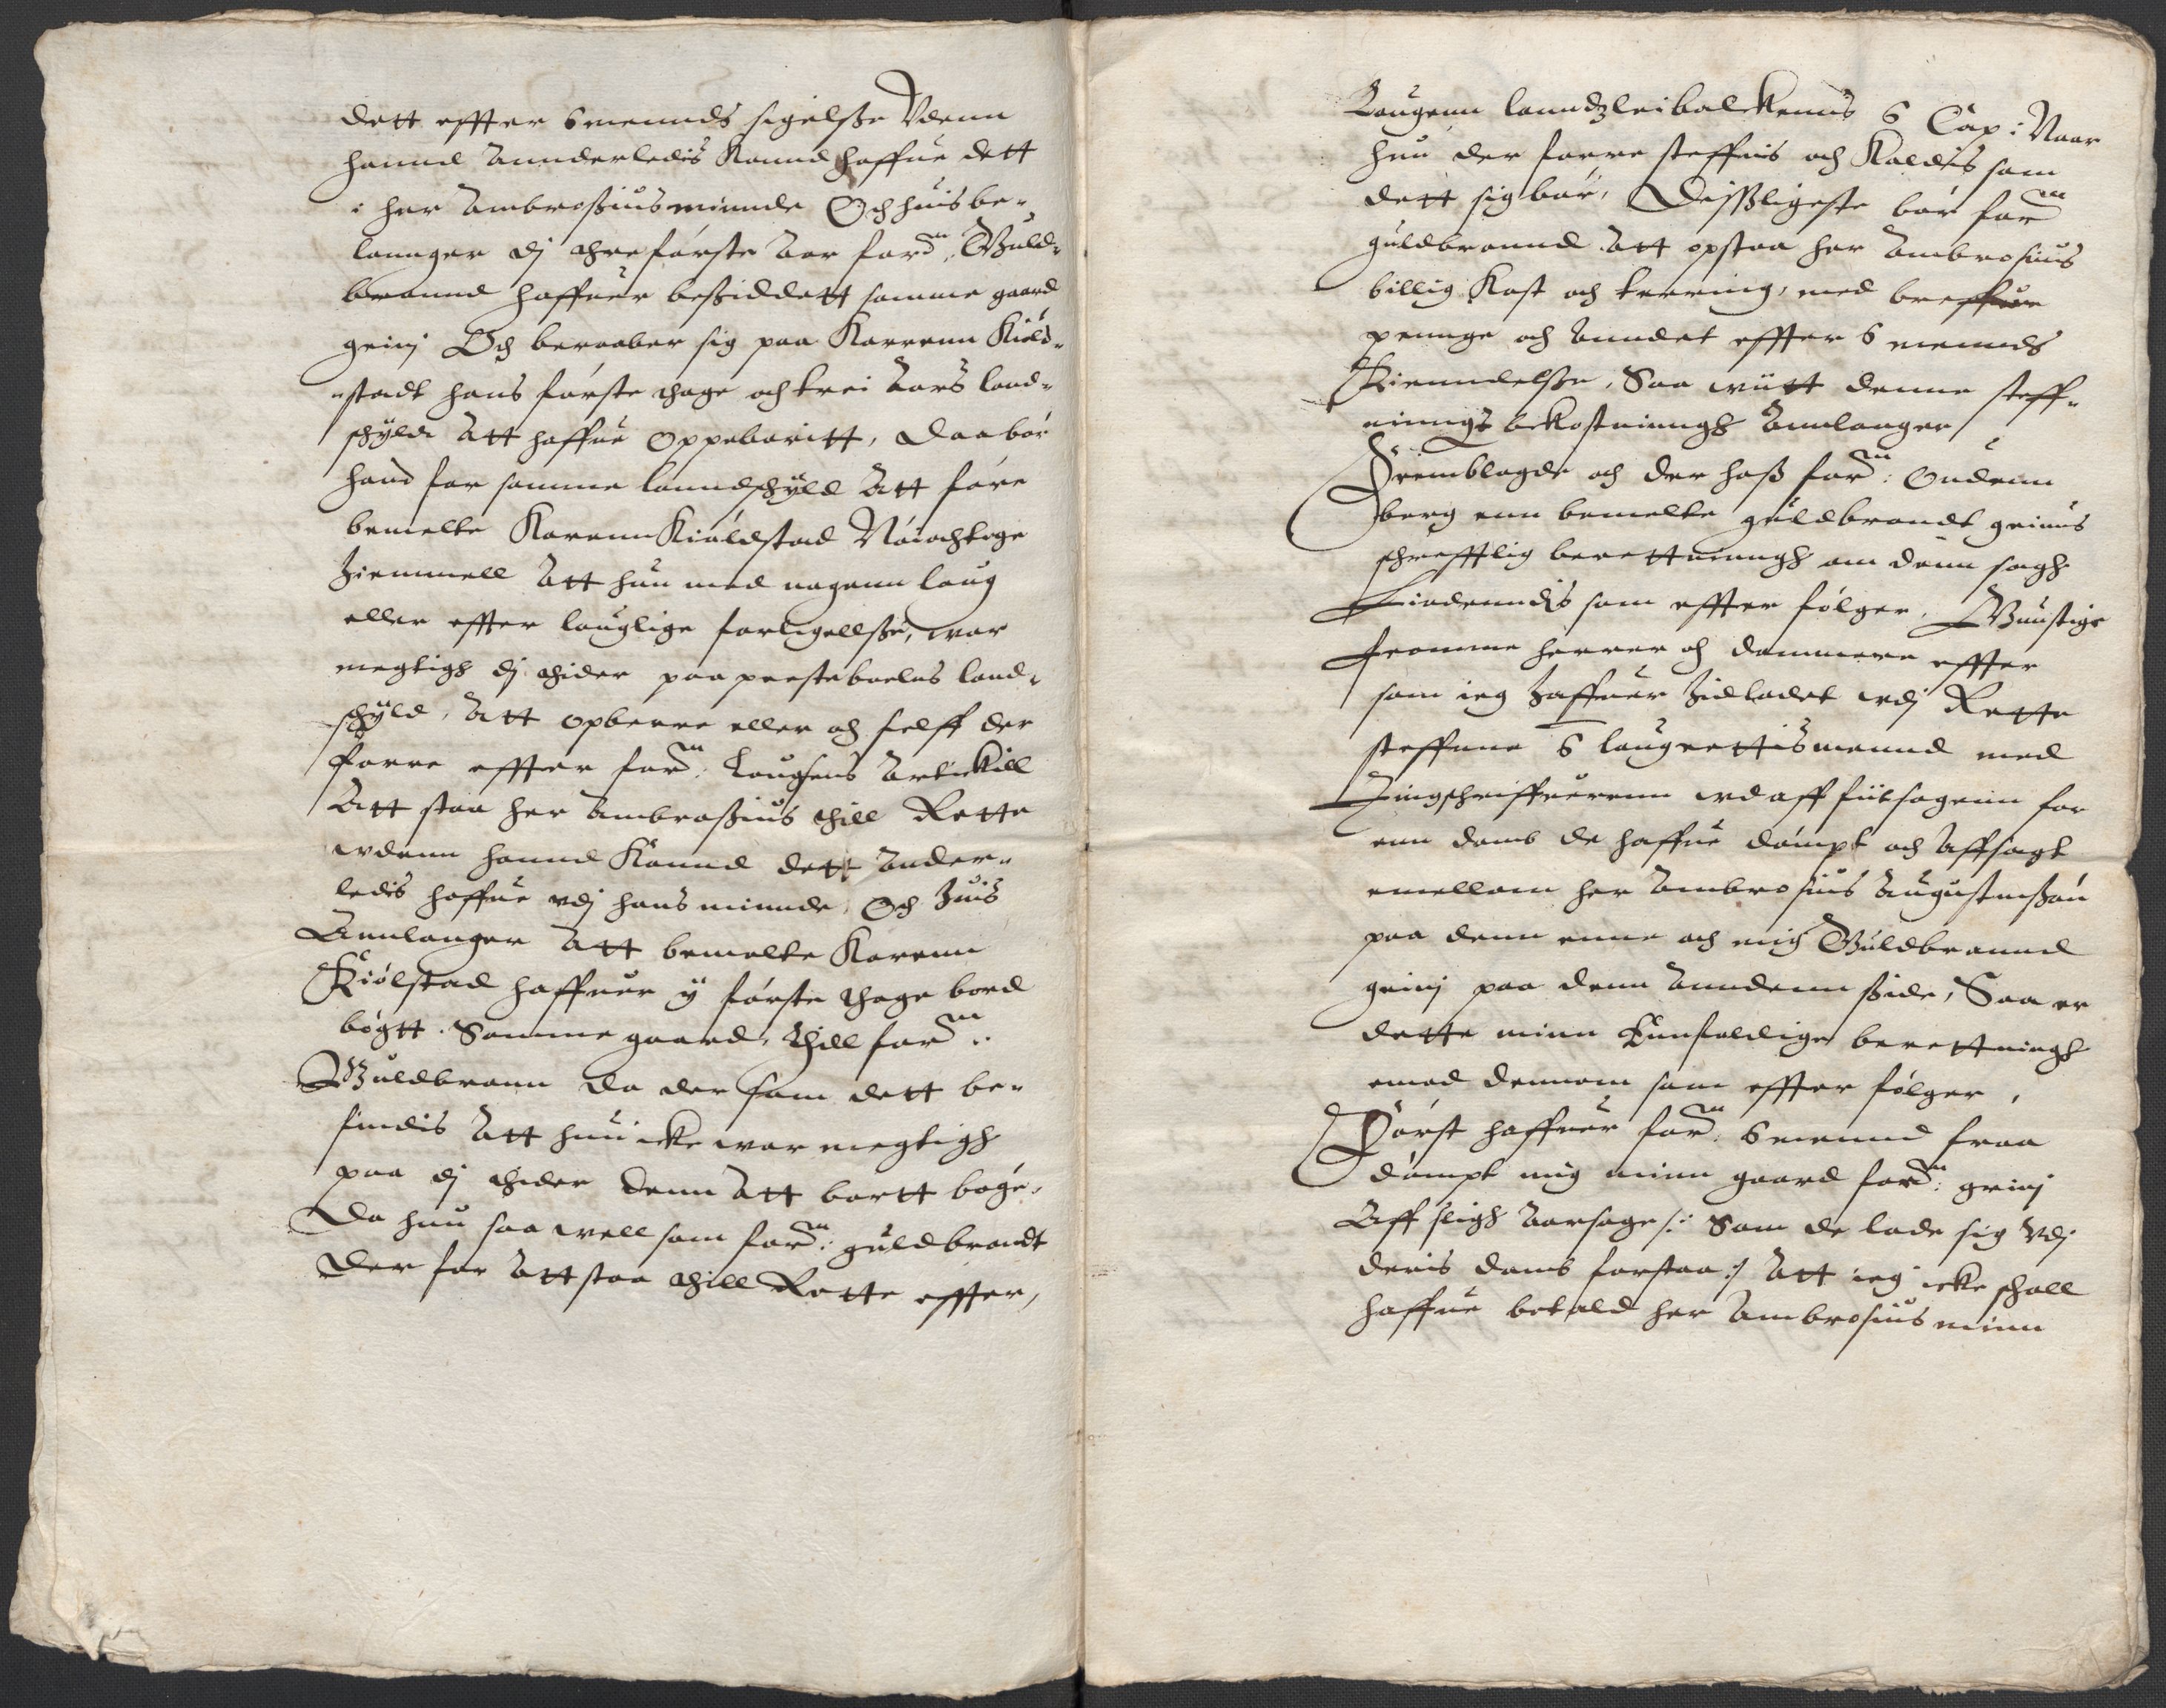 dett effter 6 mennds sigelsße Vdenn
hannd annderledis kannd haffue dett
i her Ambroßius minnde Och huis be-
lannger dj thre første aar ford.n Guld-
brannd haffuer beßiddett samme gaard
grinj Och beraaber sig paa Karrenn Kiøld-
stadt hans første thage och trei aars land-
schyld att haffue oppebaaritt, daa bør
hand for samme lanndschyld att føre
bemelte Karenn Kiøldstad Nøiachtige
hiemmell att hun med nogenn laug
eller effter lauglige forligellße, war
megtigh dj thider paa prestebolens land-
schyld, att opberre eller och sielff der
forre effter ford.n Laugsens artickill
att staa her Ambroßius thill Rette
wdenn hannd kannd dett ander-
ledis haffue vdj hans minnde, Och huis
annlanger att bemelte Karenn
Kiølstad haffuer y første thage bord
bøgtt samme gaard, thill ford.n
Guldbrann da der som dett be-
findis att hun icke war megtigh
paa dj thider denn att bortt bøge,
Da hun saa well som ford.n guldbrandt
der for att staa thill Rette effter,
Laugenn lanndzleibalckenns 6 Cap: Naar
hun der forre steffnis och kaldis som
dett sig bør, Dißligeste bør ford.n
guldbrannd att opstaa her Ambrosius
billig kost och terring, med breffue
pennge och anndet effter 6 mennds
Kienndelsße, Saa wiitt denne steff-
nings bekostninngh annlanger
Fremblagde och der hoß ford.n Ouden
berg enn bemelte guldbrandt grinnis
schrefftlig berettninngh om denn sagh
Liudenndis som effter følger, Gunstige
fromme herrer och dommere effter
som ieg haffuer hidladet vdj Rette
steffnne 6 laugrettismennd med
Tingschriffuerenn vdaff fiitsogenn for
enn domb de haffue dømpt och affsagt
emellom her Ambrosius Augustinßøn
paa denn enne och mig Guldbrannd
grinj paa denn anndenn ßide, Saa er
dette minn Eennfoldige berettningh
emod dennom som effter følger,
Først haffuer ford.n 6 mennd fraa
dømpt mig minn gaard ford.n grinj
Aff sligh aarsage /: Som de lade sig vdj
deris domb forstaa :/ att ieg icke schall
haffue betald her Ambrosius minn